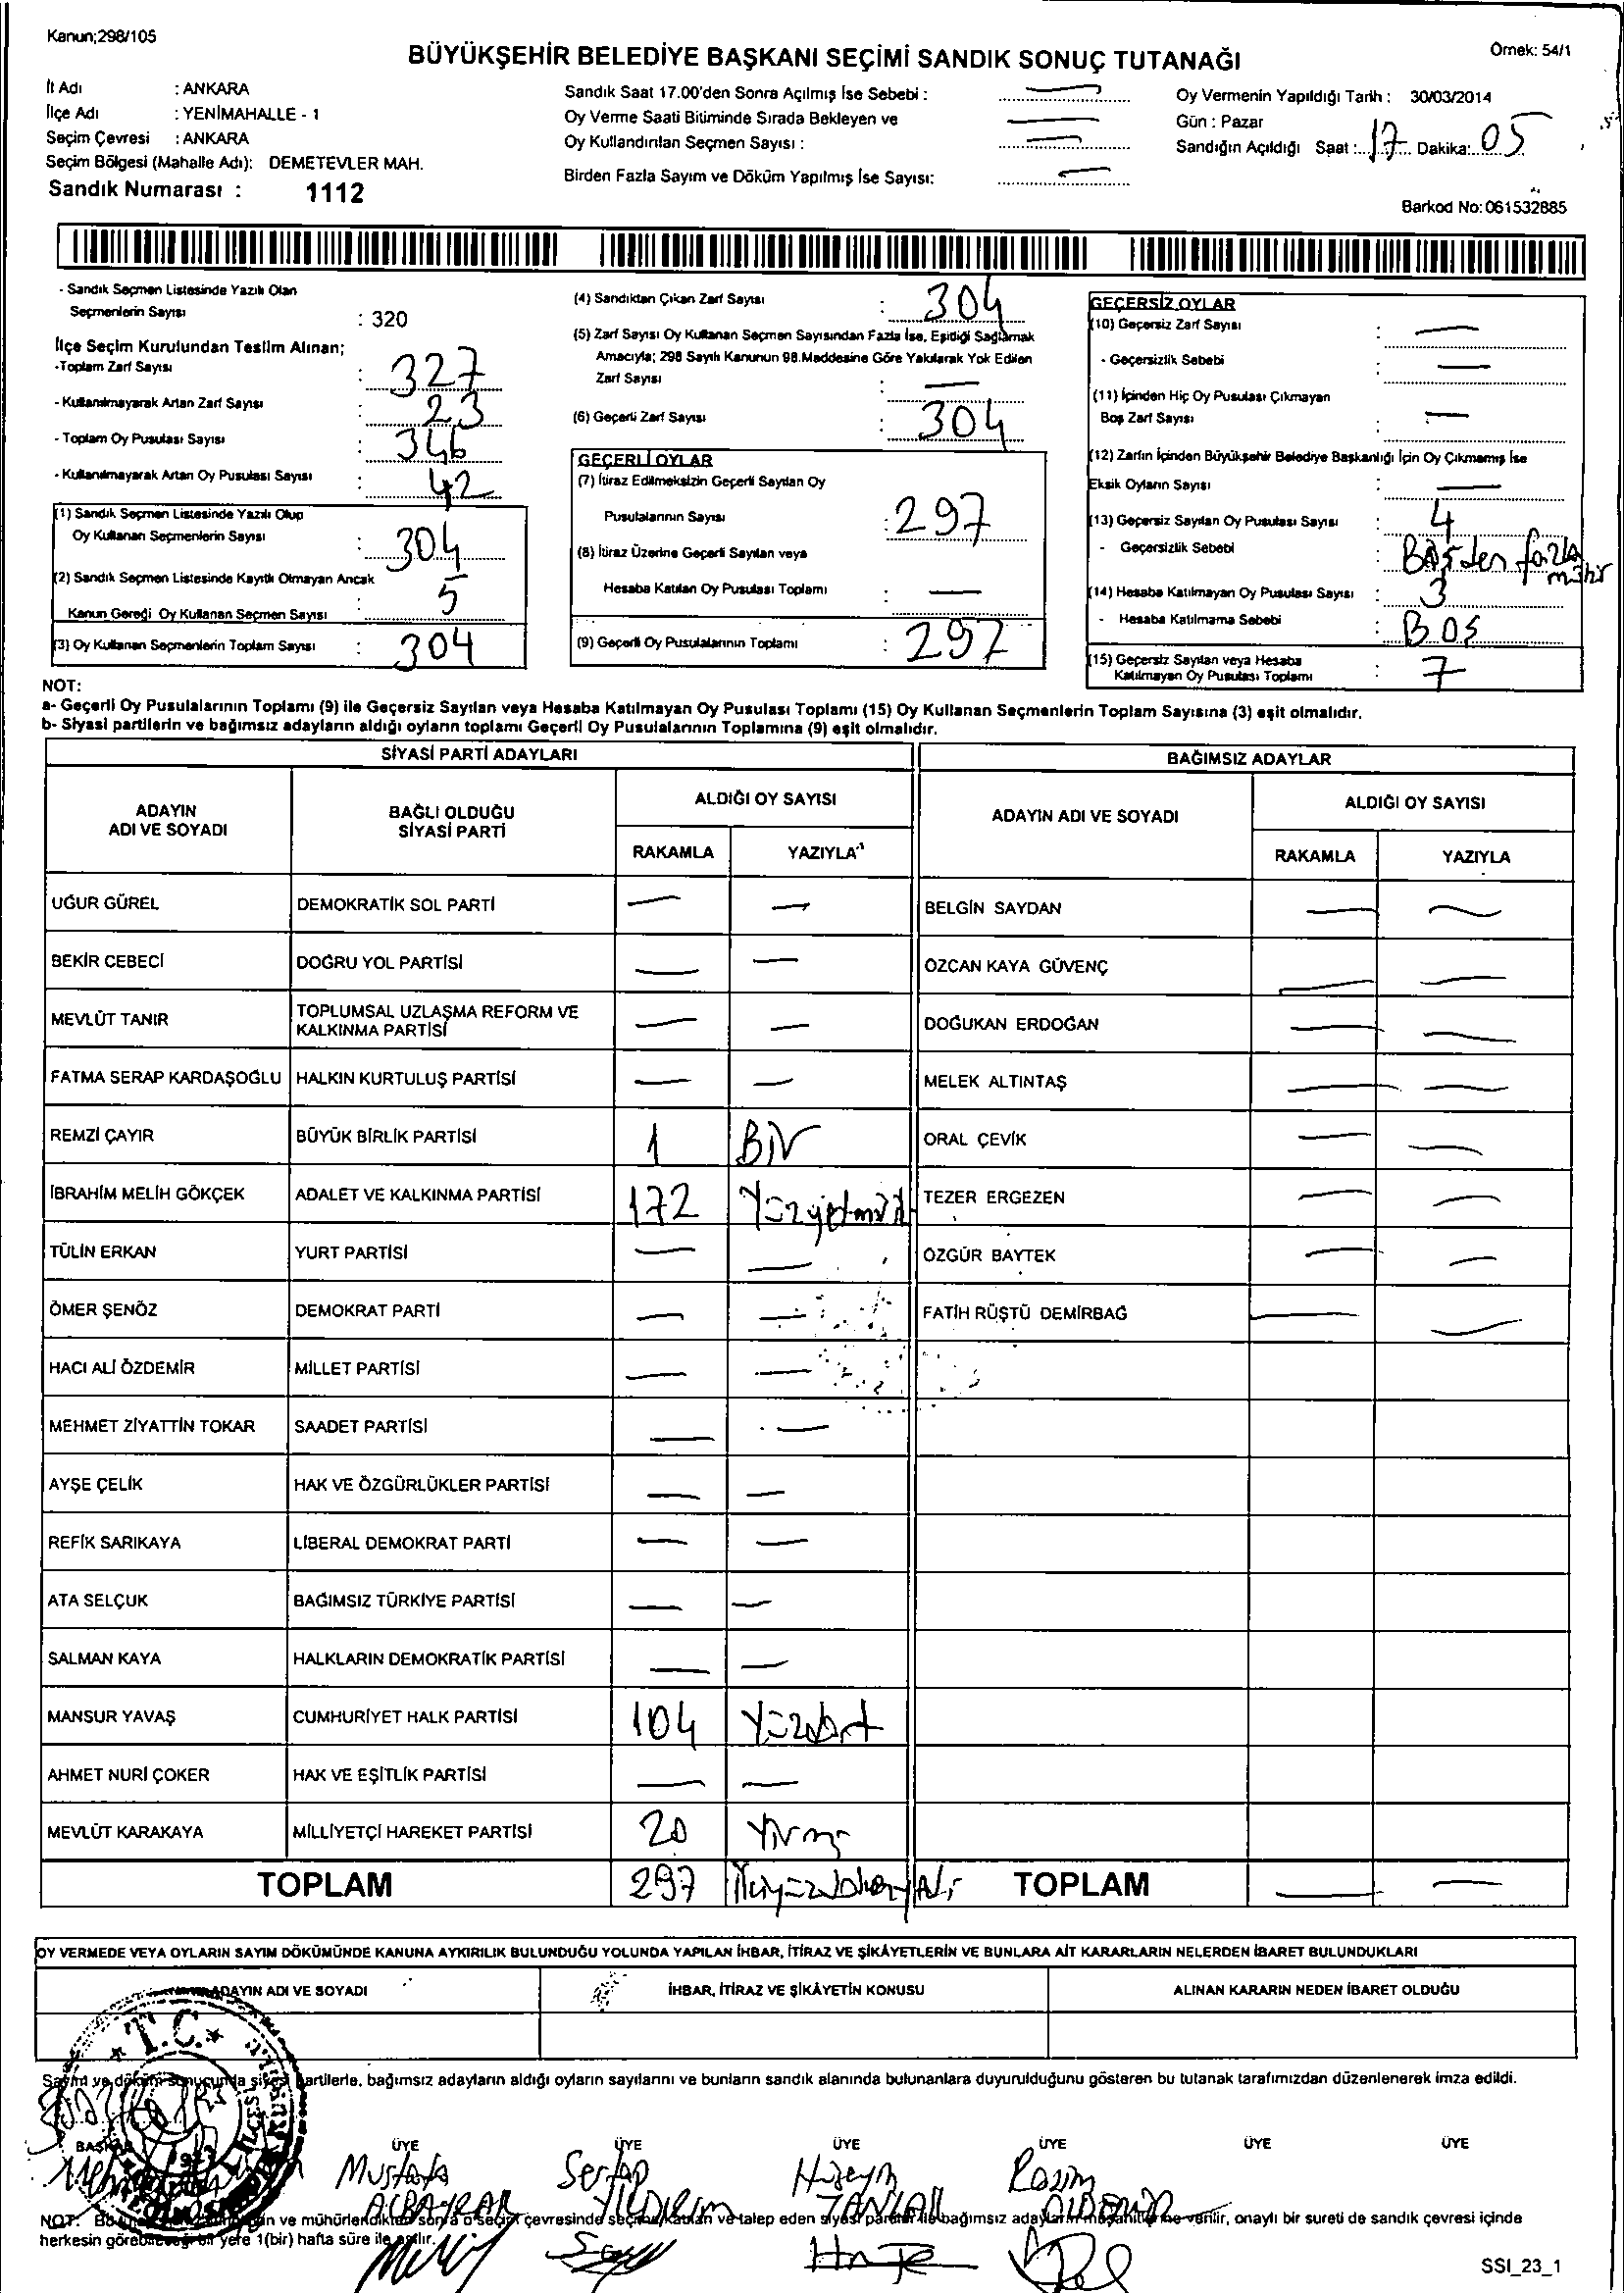 Kanun;298/105
Örnek: 54/1
BÜYÜKŞEHİR BELEDİYE BAŞKANI SEÇİMİ SANDIK SONUÇ TUTANAĞI
İl Adı : ANKARA
İlçe Adı : YENİMAHALLE - 1
Seçim Çevresi : ANKARA
Seçim Bölgesi (Mahalle Adı): DEMETEVLER MAH.
Sandık Numarası : 1112
Sandık Saat 17.00'den Sonra Açılmış İse Sebebi : —
Oy Verme Saati Bitiminde Sırada Bekleyen ve —
Oy Kullandırılan Seçmen Sayısı : —
Birden Fazla Sayım ve Döküm Yapılmış İse Sayısı: —
Oy Vermenin Yapıldığı Tarih : 30/03/2014
Gün : Pazar
Sandığın Açıldığı Saat : 17 Dakika: 05
Barkod No: 061532885
- Sandık Seçmen Listesinde Yazılı Olan
Seçmenlerin Sayısı : 320
İlçe Seçim Kurulundan Teslim Alınan;
-Toplam Zarf Sayısı : 327
- Kullanılmayarak Artan Zarf Sayısı : 23
- Toplam Oy Pusulası Sayısı : 346
- Kullanılmayarak Artan Oy Pusulası Sayısı : 42
(1) Sandık Seçmen Listesinde Yazılı Olup
Oy Kullanan Seçmenlerin Sayısı : 304
(2) Sandık Seçmen Listesinde Kayıtlı Olmayan Ancak
Kanun Gereği Oy Kullanan Seçmen Sayısı : 5
(3) Oy Kullanan Seçmenlerin Toplam Sayısı : 304
(4) Sandıktan Çıkan Zarf Sayısı : 304
(5) Zarf Sayısı Oy Kullanan Seçmen Sayısından Fazla İse, Eşitliği Sağlamak
Amacıyla; 298 Sayılı Kanunun 98.Maddesine Göre Yakılarak Yok Edilen
Zarf Sayısı : —
(6) Geçerli Zarf Sayısı : 304
GEÇERLİ OYLAR
(7) İtiraz Edilmeksizin Geçerli Sayılan Oy
Pusulalarının Sayısı : 297
(8) İtiraz Üzerine Geçerli Sayılan veya
Hesaba Katılan Oy Pusulası Toplamı : —
(9) Geçerli Oy Pusulalarının Toplamı : 297
GEÇERSİZ OYLAR
(10) Geçersiz Zarf Sayısı : —
- Geçersizlik Sebebi : —
(11) İçinden Hiç Oy Pusulası Çıkmayan
Boş Zarf Sayısı : —
(12) Zarfın İçinden Büyükşehir Belediye Başkanlığı İçin Oy Çıkmamış İse
Eksik Oyların Sayısı : —
(13) Geçersiz Sayılan Oy Pusulası Sayısı : 4
- Geçersizlik Sebebi : Birden fazla
mühür
(14) Hesaba Katılmayan Oy Pusulası Sayısı : 3
- Hesaba Katılmama Sebebi : BOŞ
(15) Geçersiz Sayılan veya Hesaba
Katılmayan Oy Pusulası Toplamı : 7
NOT:
a- Geçerli Oy Pusulalarının Toplamı (9) ile Geçersiz Sayılan veya Hesaba Katılmayan Oy Pusulası Toplamı (15) Oy Kullanan Seçmenlerin Toplam Sayısına (3) eşit olmalıdır.
b- Siyasi partilerin ve bağımsız adayların aldığı oyların toplamı Geçerli Oy Pusulalarının Toplamına (9) eşit olmalıdır.
SİYASİ PARTİ ADAYLARI BAĞIMSIZ ADAYLAR
ADAYIN ADI VE SOYADI BAĞLI OLDUĞU SİYASİ PARTİ ALDIĞI OY SAYISI ADAYIN ADI VE SOYADI ALDIĞI OY SAYISI
RAKAMLA YAZIYLA RAKAMLA YAZIYLA
UĞUR GÜREL DEMOKRATİK SOL PARTİ — — BELGİN SAYDAN — —
BEKİR CEBECİ DOĞRU YOL PARTİSİ — — ÖZCAN KAYA GÜVENÇ — —
MEVLÜT TANIR TOPLUMSAL UZLAŞMA REFORM VE KALKINMA PARTİSİ — — DOĞUKAN ERDOĞAN — —
FATMA SERAP KARDAŞOĞLU HALKIN KURTULUŞ PARTİSİ — — MELEK ALTINTAŞ — —
REMZİ ÇAYIR BÜYÜK BİRLİK PARTİSİ 1 Bir ORAL ÇEVİK — —
İBRAHİM MELİH GÖKÇEK ADALET VE KALKINMA PARTİSİ 172 Yüzyetmiş TEZER ERGEZEN — —
TÜLİN ERKAN YURT PARTİSİ — — ÖZGÜR BAYTEK — —
ÖMER ŞENÖZ DEMOKRAT PARTİ — — FATİH RÜŞTÜ DEMİRBAĞ — —
HACI ALİ ÖZDEMİR MİLLET PARTİSİ — —
MEHMET ZİYATTİN TOKAR SAADET PARTİSİ — —
AYŞE ÇELİK HAK VE ÖZGÜRLÜKLER PARTİSİ — —
REFİK SARIKAYA LİBERAL DEMOKRAT PARTİ — —
ATA SELÇUK BAĞIMSIZ TÜRKİYE PARTİSİ — —
SALMAN KAYA HALKLARIN DEMOKRATİK PARTİSİ — —
MANSUR YAVAŞ CUMHURİYET HALK PARTİSİ 104 Yüzdört
AHMET NURİ ÇOKER HAK VE EŞİTLİK PARTİSİ — —
MEVLÜT KARAKAYA MİLLİYETÇİ HAREKET PARTİSİ 20 Yirmi
TOPLAM 297 İkiyüzdoksanyedi TOPLAM — —
OY VERMEDE VEYA OYLARIN SAYIM DÖKÜMÜNDE KANUNA AYKIRILIK BULUNDUĞU YOLUNDA YAPILAN İHBAR, İTİRAZ VE ŞİKÂYETLERİN VE BUNLARA AİT KARARLARIN NELERDEN İBARET BULUNDUKLARI
ADAYIN ADI VE SOYADI İHBAR, İTİRAZ VE ŞİKÂYETİN KONUSU ALINAN KARARIN NEDEN İBARET OLDUĞU
T.C.
Sayım ve döküm sonucunda siyasi partilerle, bağımsız adayların aldığı oyların sayılarını ve bunların sandık alanında bulunanlara duyurulduğunu gösteren bu tutanak tarafımızdan düzenlenerek imza edildi.
BAŞKAN ÜYE ÜYE ÜYE ÜYE ÜYE ÜYE
Mustafa Sertap Hüseyin Rasim
YILDIRIM
NOT: ve mühürlendikten sonra o seçim çevresinde seçime katılan ve talep eden siyasi partiler ile bağımsız adayların müşahitlerine verilir, onaylı bir sureti de sandık çevresi içinde
herkesin görebileceği bir yere 1(bir) hafta süre ile asılır.
SSI_23_1